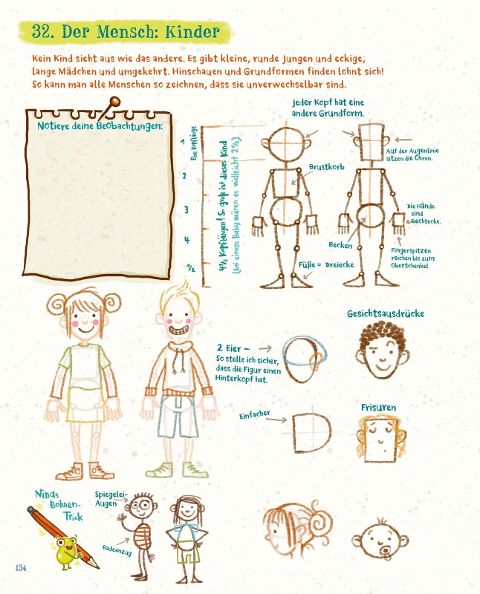 32. Der Mensch: Kinder
Kein Kind sieht aus wie das andere. Es gibt kleine, runde Jungen und eckige,
lange Mädchen und umgekehrt. Hinschauen und Grundformen finden lohnt sich!
So kann man alle Menschen so zeichnen, dass sie unverwechselbar sind.
Notiere deine Beobachtungen:
Jeder Kopf hat eine
andere Grundform.
1
2
3
4
4½ Kopflängen! So groß ist dieses Kind
(bei einem Baby wären es vielleicht 2½)
Auf der Augenlinie
sitzen die Ohren.
Brustkorb
Die Hände
sind
Rechtecke.
Becken
Fingerspitzen
reichen bis zum
Oberschenkel
Füße = Dreiecke
2 Eier –
So stelle ich sicher,
dass die Figur einen
Hinterkopf hat.
Gesichtsausdrücke
Einfacher
Frisuren
Ninas
Bohnen-
Trick
Spiegelei-
Augen
Badeanzug
134